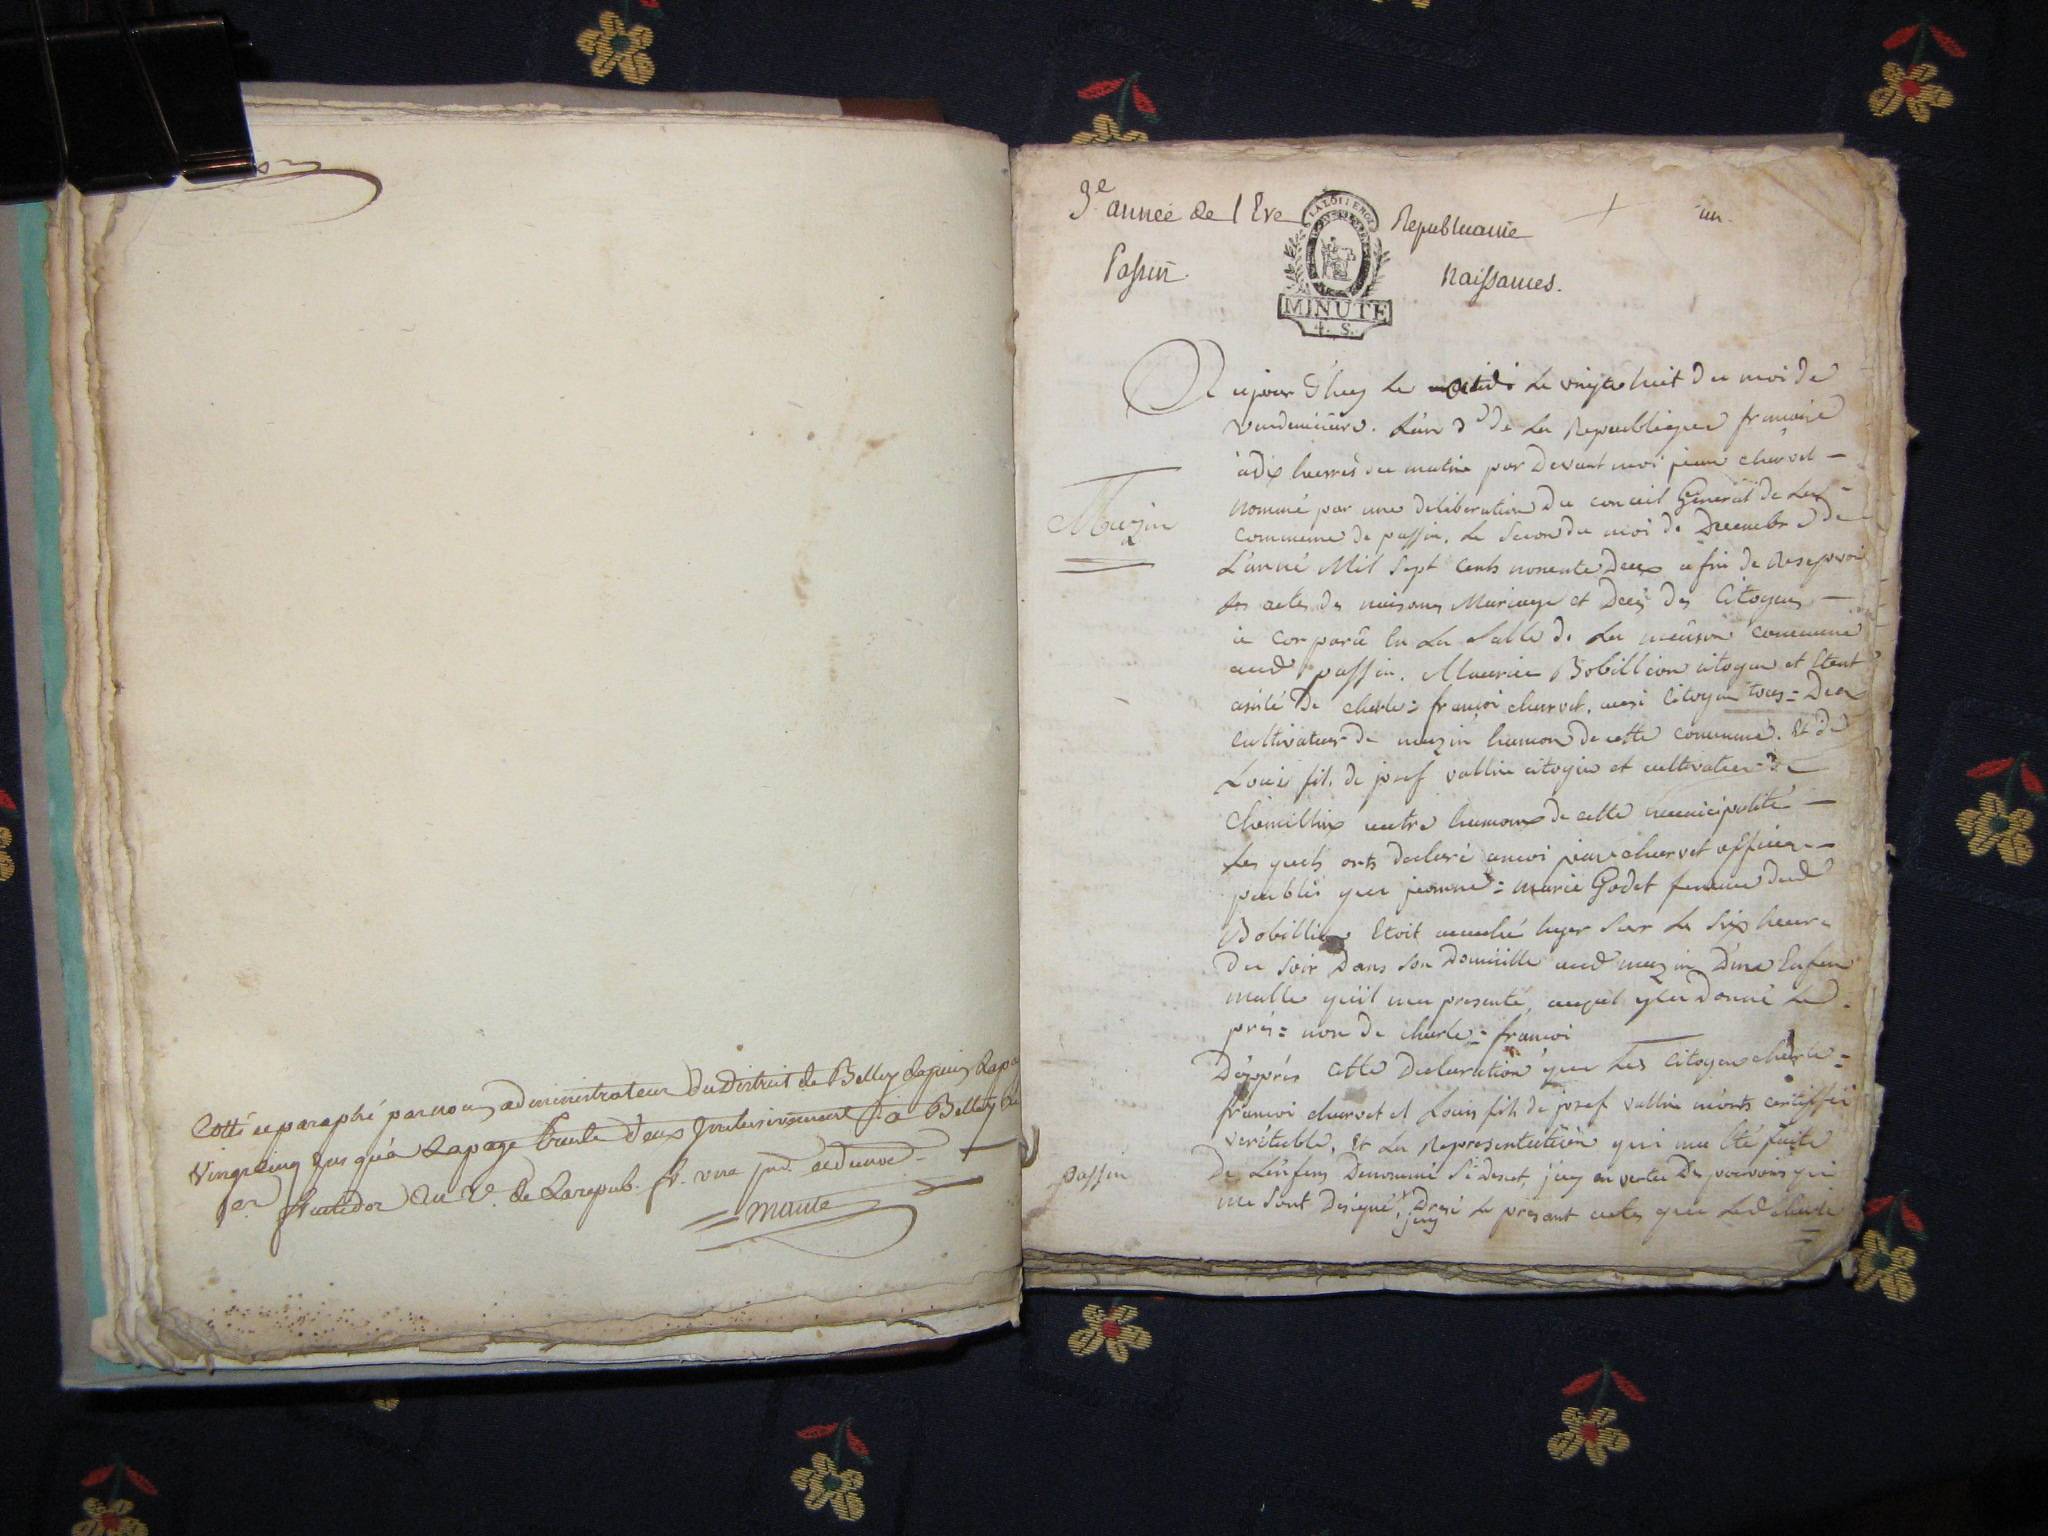 Cotté et paraphé par nous administrateur du District de Belley depuis Lapa
Vingt cinq jus qu'à Lapage trente deux Inclusivement à Belley le
1er fructidor au 2e. de Larepub. f. une ind.
maute
3e année de l Ere Republicaine un
LA LOI LE ROI
Passin. Naissances.
MINUTE
4. S.
Aujour d'huy le octidi le vingte huit du moi de
vendemiaire. L'an 3e de la Republique françoise
à dix heurres du matin par devant moi jean chervet —
Muzin
nommé par une deliberation du conceil General de La -
commune de passin. le second du moi de Decembre de
L'anné Mil Sept Cents nonente Deux afin de
les actes de naisances Mariage et Decis des Citoyens —
à comparû en La Salle de La maison commune
aud passin. Maurice Bobillion citoyen et Etent
asisté de charle = françoi chervet, aussi citoyen tous = Deux
cultivateur de muzin hamon de cette commune. Et de
Louis fils de josef vallin citoyen et cultivateur de
Chemillin autre hamon de cette municipalité —
Les quels onts declaré amoi jean chervet officier —
public que jeanne = marie Godet femme dud
Bobillion Etoit accouché hyer sur Le Six heure
du Soir Dans Son Domicille aud muzin D'une Enfen
malle qu'il ma presenté, auquel yla donné le -
prés = non de charle = françoi
D'aprés cette Declaration que Les Citoyen charle =
françoi chervet et Louis fils de josef vallin m'onts certiffié
veritable, Et La Representation qui ma Eté faite
passin
De L'enfens Denommé Si desut, j'ay en vertu Des pouvoirs qui
me Sont Désigné, Dresé Le présant actes que Led charle
jay